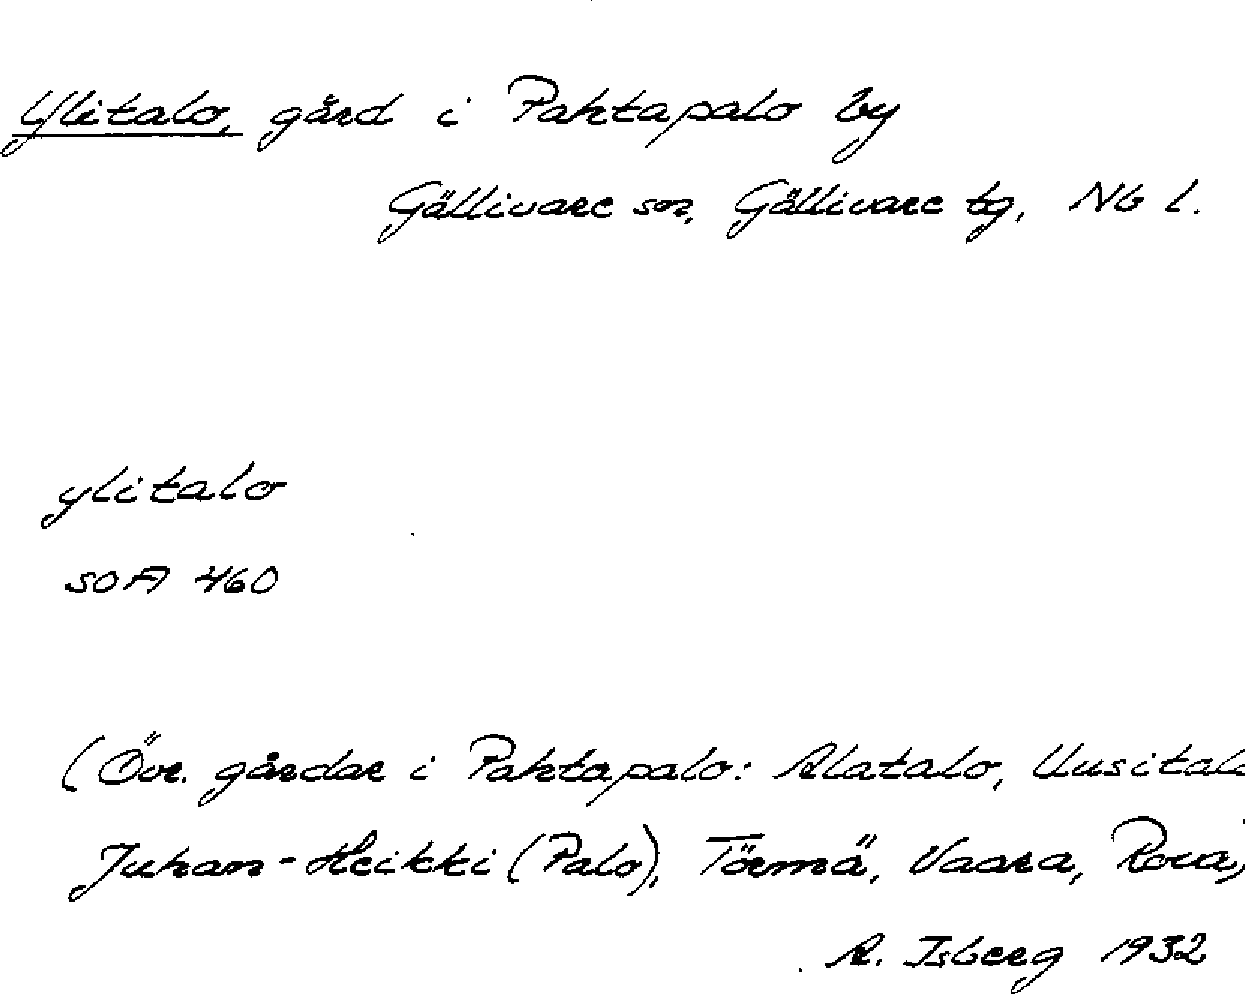 Ylitalo, gård i Pahtapalo by
Gällivare sn, Gällivare tg, Nb l.
ylitalo
SOA 460
(Övr. gårdar i Pahtapalo: Alatalo, Uusitalo
Juhan-Heikki (Palo), Törmä, Vaara, Rova)
A. Isberg 1932